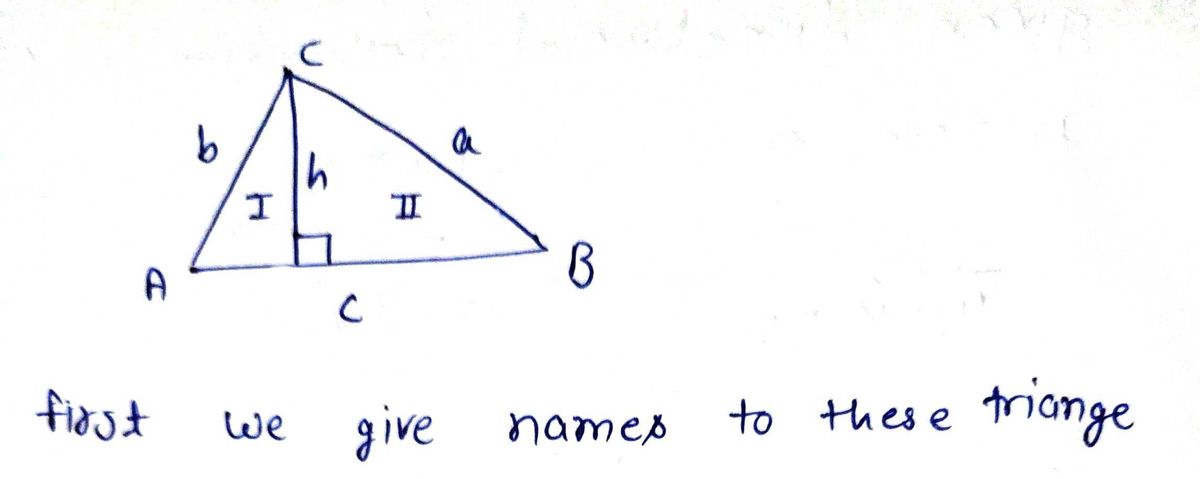 C
b a
h
I II
A B
C
first we give names to these triange